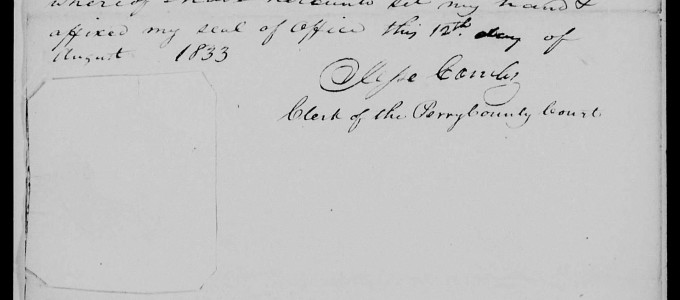 whereof I have hereunto set my hand &
affixed my seal of Office this 12th day of
August 1833
Jesse Combs
Clerk of the Perry County Court